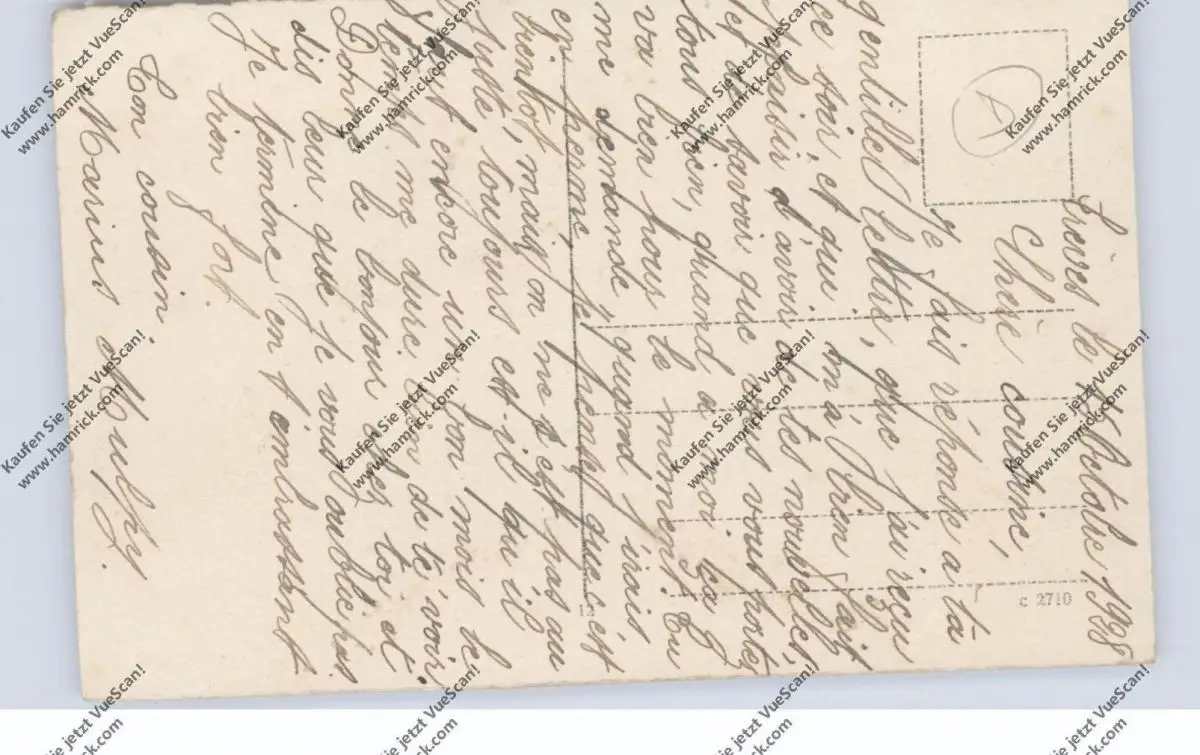 Trèves le 18 Octobre 1928
Chère cousine,
Je fais réponse a ta
gentillet lettre, que j'ai reçu
ce soir, et qui m'a bien fait
plaisir d'avoir de te nouvelles,
et de savoir que vous vous portez
tous bien, quand a moi ça
va bien pour le moment. Tu
me demande quand j'irais
en perme je pense que c'est
bientot, mais on ne s'est pas au
juste toujours est-il qu'il
faut encore un bon mois le
temps me dure bien de te voir.
Donne le bonjour chez toi et
dis leur que je vous oublie pas
Je termine en t'embrassant
bien fort
Ton cousin,
Marius
12
c 2710
Kaufen Sie jetzt VueScan!
www.hamrick.com